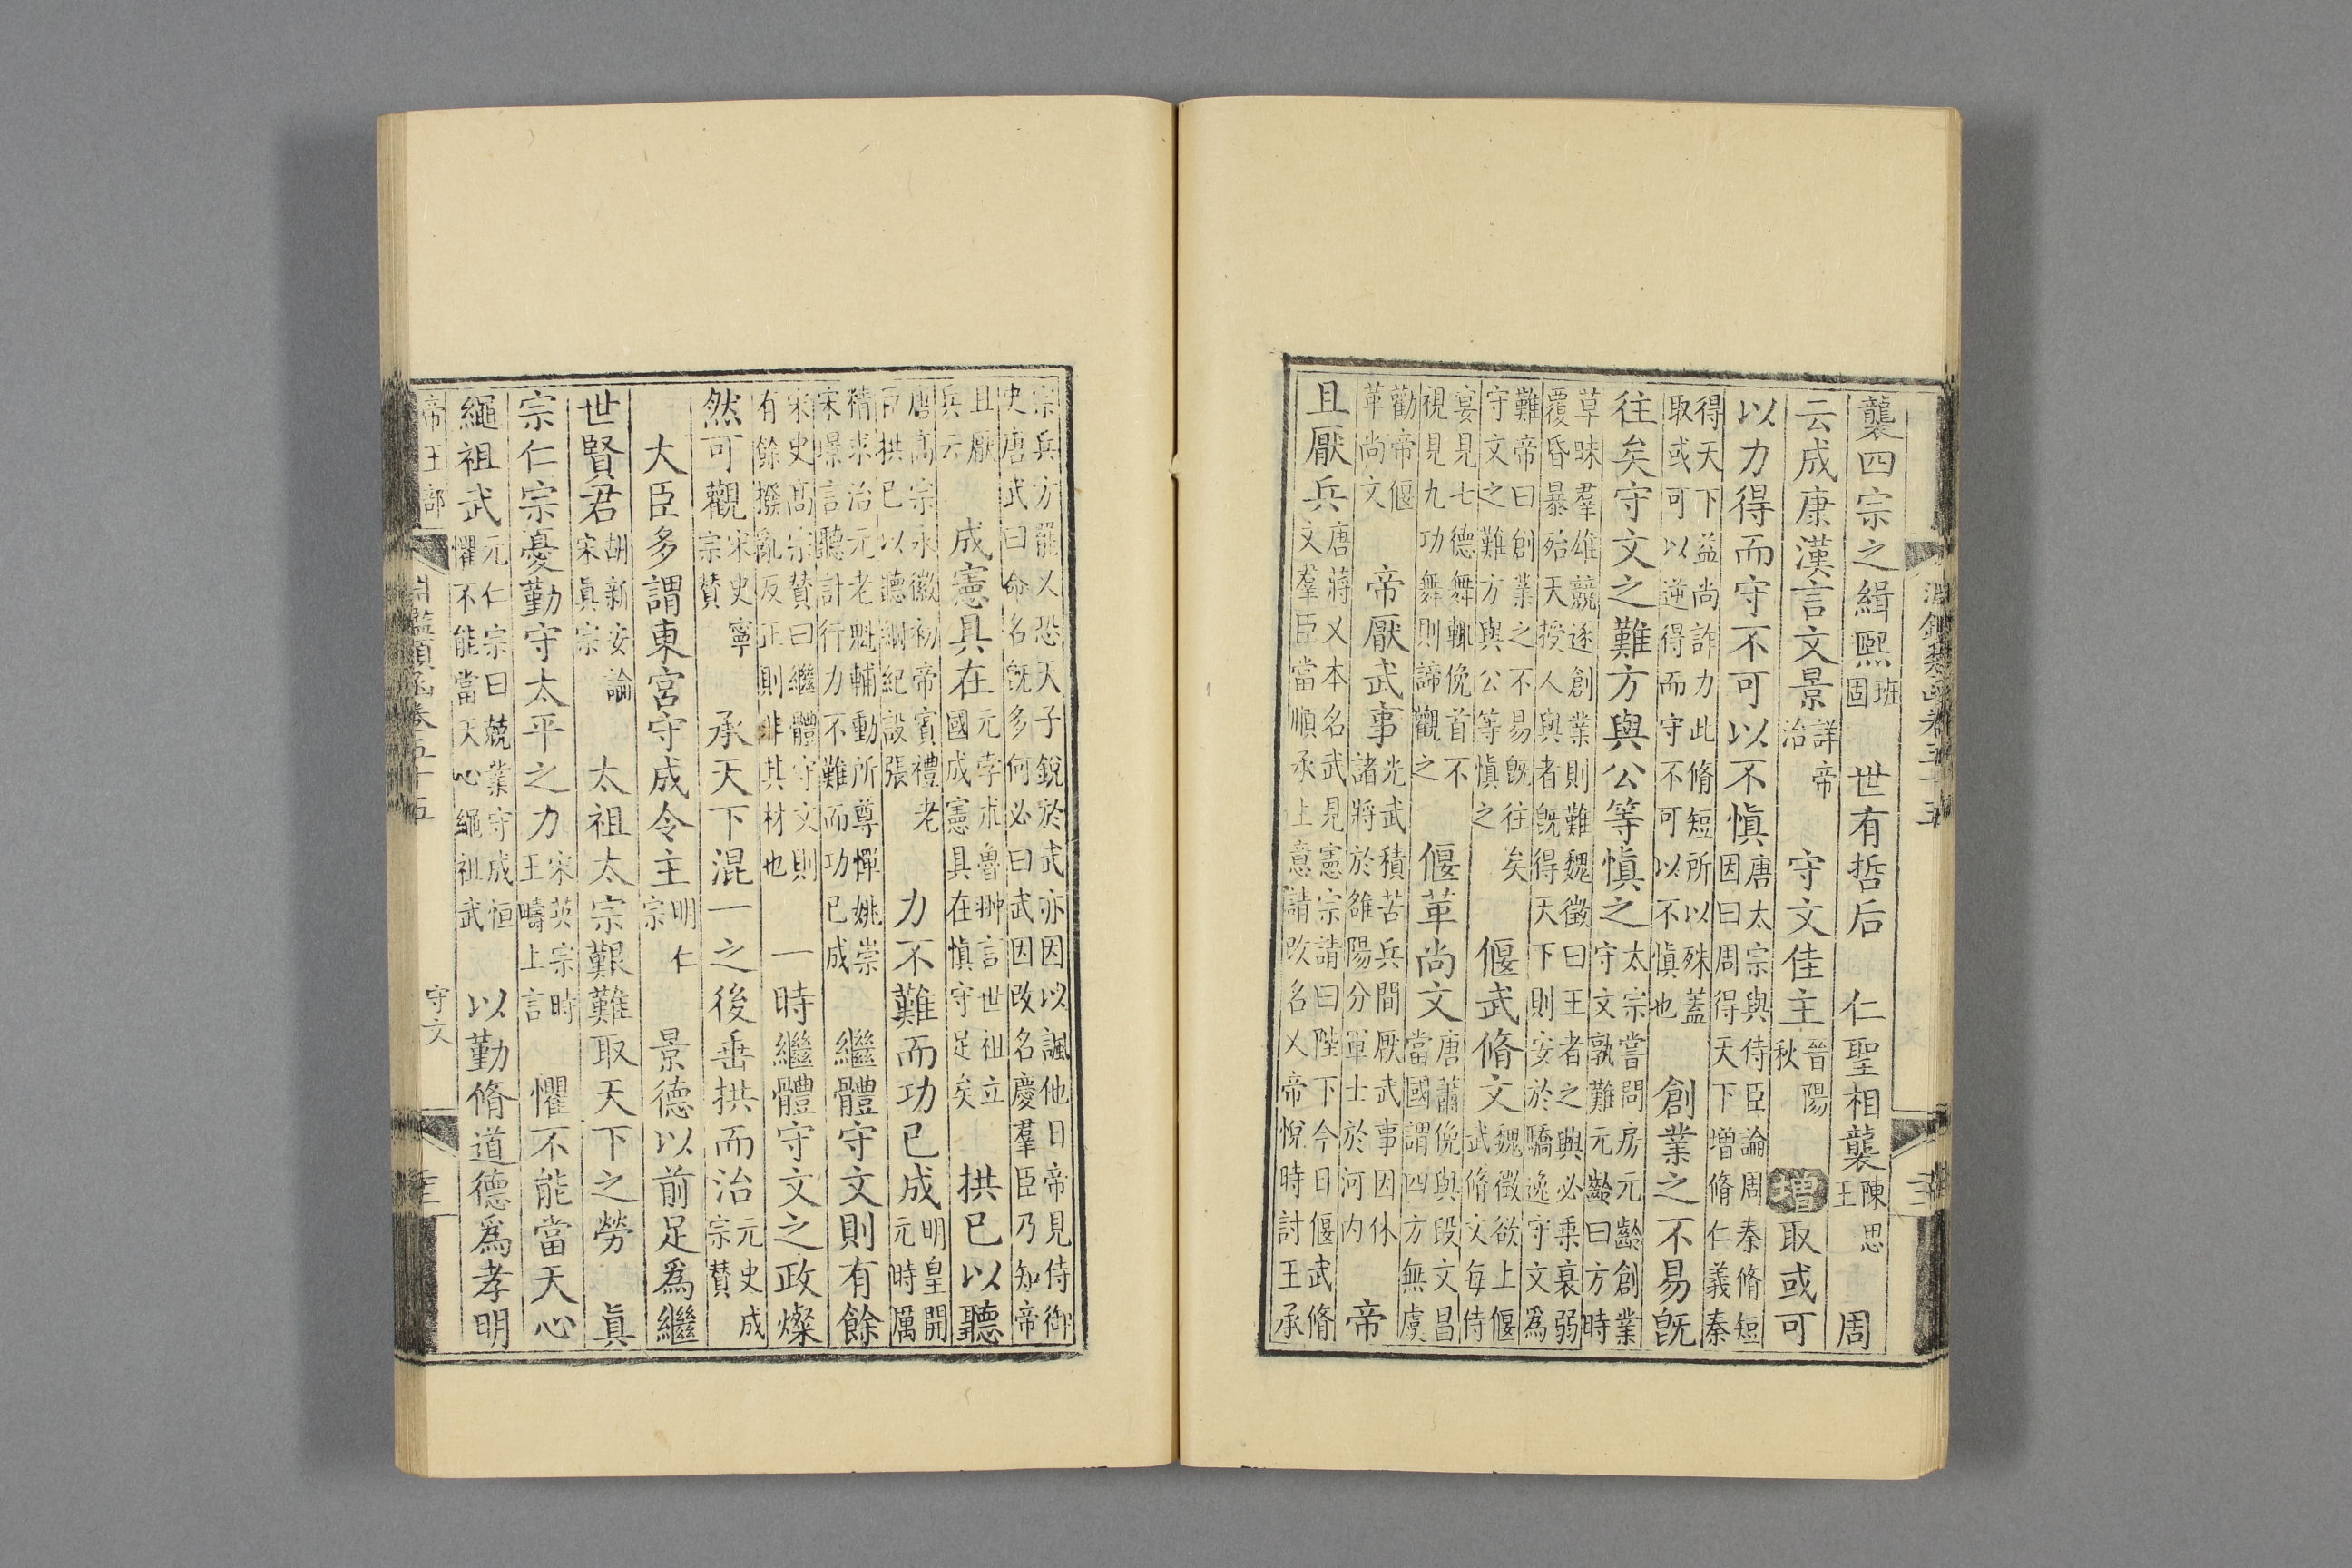 淵鑑類函卷五十五
襲四宗之緝熙班固 世有哲后 仁聖相襲陳思王 周
云成康漢言文景詳帝治 守文佳主晉陽秋 增取或可
以力得而守不可以不慎唐太宗與侍臣論周秦脩短因曰周得天下増脩仁義秦
得天下益尚詐力此脩短所以殊蓋取或可以逆得而守不可以不慎也 創業之不易旣
往矣守文之難方與公等慎之太宗嘗問房元齡創業守文孰難元齡曰方時
草昧羣雄競逐創業則難魏徵曰王者之興必乘衰弱覆昏暴殆天授人與者旣得天下則安於驕逸守文爲
難帝曰創業之不易旣往矣守文之難方與公等慎之 偃武脩文魏徵欲上偃武脩文每侍
宴見七德舞輒俛首不視見九功舞則諦觀之 偃革尚文唐蕭俛與段文昌當國謂四方無虞
勸帝偃革尚文 帝厭武事光武積苦兵間厭武事因休諸將於雒陽分軍士於河内 帝
且厭兵唐蔣乂本名武見憲宗請曰陛下今日偃武脩文羣臣當順承上意請改名乂帝悅時討王承
宗兵方罷乂恐天子銳於武亦因以諷他日帝見侍御史唐武曰命名旣多何必曰武因改名慶羣臣乃知帝
且厭兵云 成憲具在元孛朮魯翀言世祖立國成憲具在慎守足矣 拱已以聽
唐高宗永徽初帝賓禮老臣拱已以聽綱紀設張 力不難而功已成明皇開元時厲
精求治元老魁輔動所尊憚姚崇宋璟言聽計行力不難而功已成 繼體守文則有餘
宋史高宗贊曰繼體守文則有餘撥亂反正則非其材也 一時繼體守文之政燦
然可觀宋史寧宗贊 承天下混一之後垂拱而治元史成宗贊
大臣多謂東宮守成令主明仁宗 景德以前足爲繼
世賢君胡新安論宋眞宗 太祖太宗艱難取天下之勞 眞
宗仁宗憂勤守太平之力宋英宗時王疇上言 懼不能當天心
繩祖武元仁宗曰兢業守成恒懼不能當天心繩祖武 以勤脩道德爲孝明
帝王部 淵鑑類函卷五十五 守文